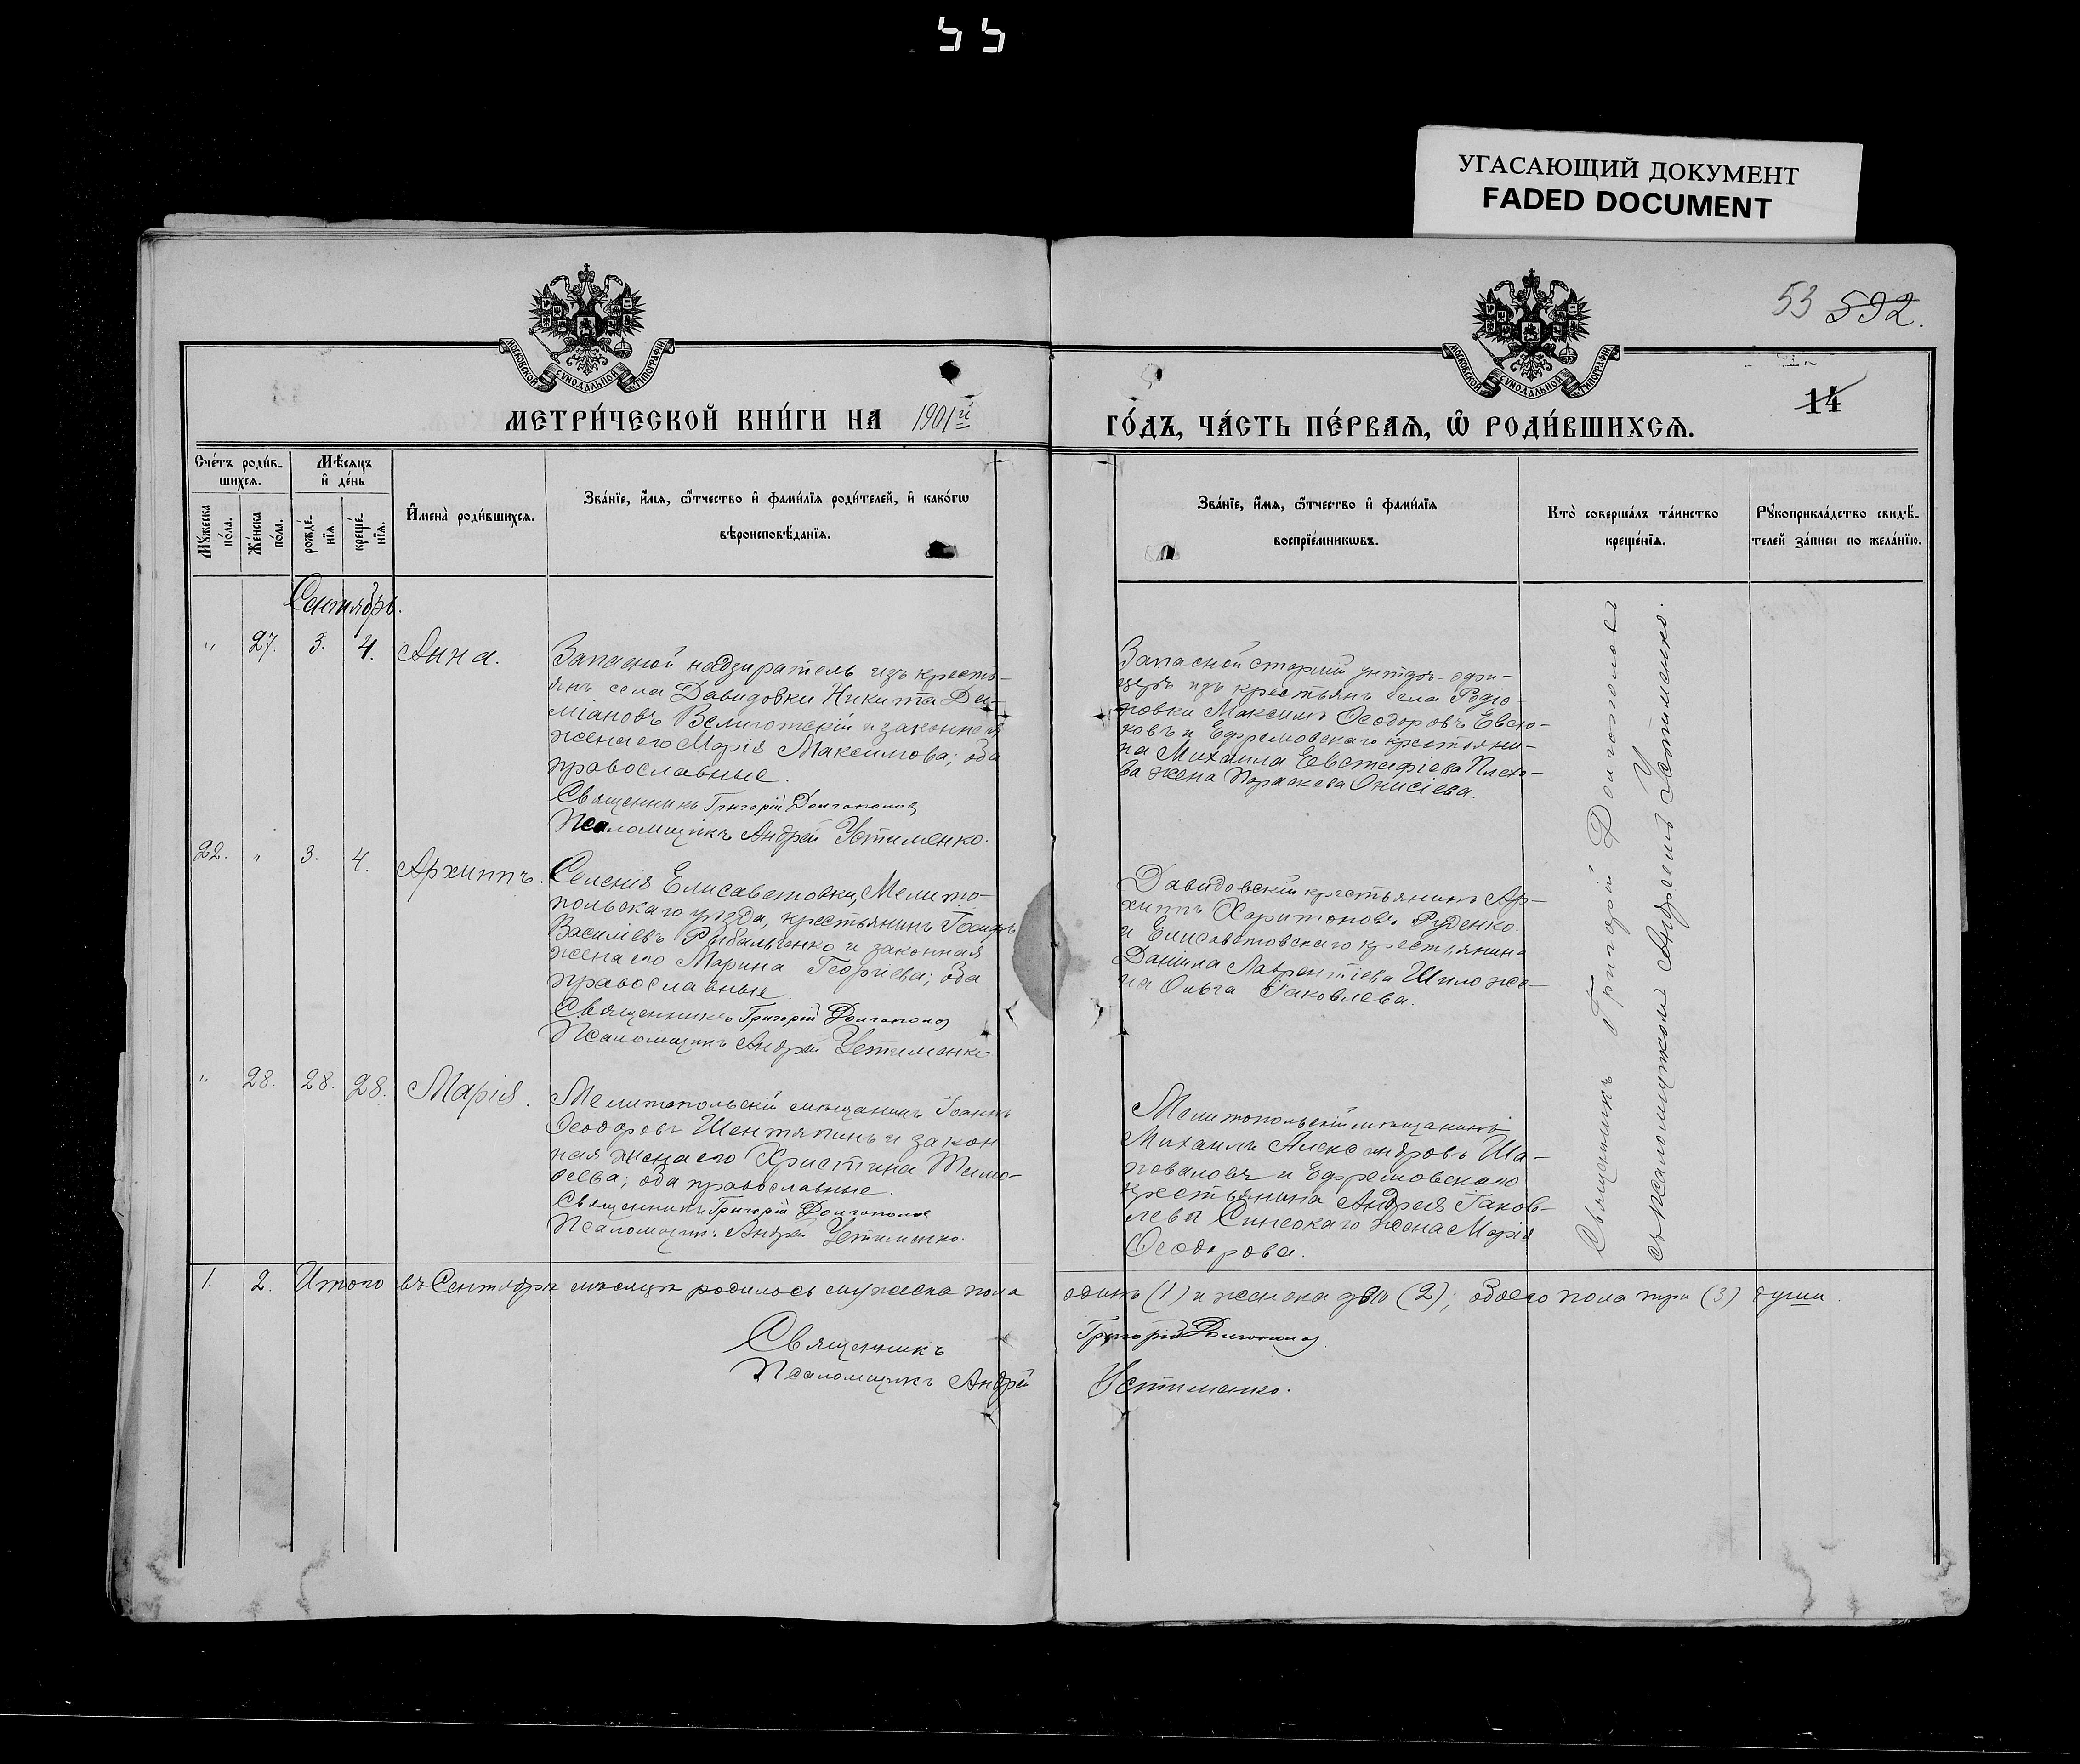 УГАСАЮЩИЙ ДОКУМЕНТ
FADED DOCUMENT
53 592.
14
МОСКОВСКОЙ СѴНОДАЛЬНОЙ ТИПОГРАФІИ
МОСКОВСКОЙ СѴНОДАЛЬНОЙ ТИПОГРАФІИ
МЕТРИ́ЧЕСКОЙ КНИ́ГИ НА 1901й
ГО́ДЪ, ЧА́СТЬ ПЕ́РВАѦ, Ѽ РОДИ́ВШИХСѦ.
Сче́тъ роди́в-
шихся.
Мѣ́сяцъ
и҆ де́нь
Му́жеска
по́ла.
Же́нска
по́ла.
рожде́-
нїя
креще́-
нїя.
И҆мена̀ роди́вшихся.
Зва́нїе, и҆́мя, ѻ҆́тчество и҆ фами́лїя роди́телей, и҆ како́гѡ
вѣроисповѣ́данїя.
Зва́нїе, и҆́мя, ѻ҆́тчество и҆ фами́лїя
воспрїе́мникѡвъ.
Кто̀ соверша́лъ та́инство
креще́нїя.
Рукоприкла́дство свидѣ́-
телей за́писи по жела́нїю.
Сентябрь.
" 27. 3. 4. Анна.
Запасной надзиратель изъ кресть-
янъ села Давидовки Никита Де-
міановъ Велиготскій и законная
жена его Марія Максимова; оба
православные.
Священникъ Григорій Долгополов
Псаломщикъ Андрей Устименко.
Запасной старшій унтеръ-офи-
церъ изъ крестьянъ села Родіо-
новки Максимъ Ѳеодоровъ Евсю-
ковъ и Ефремовскаго крестьяни-
на Михаила Евстафіева Плехо-
ва жена Параскева Онисіева.
22. " 3. 4. Архиппъ.
Селенія Елисаветовки, Мелито-
польскаго уѣзда, крестьянинъ Іосифъ
Василіевъ Рыбальченко и законная
жена его Марина Георгіева; оба
православные.
Священникъ Григорій Долгополов
Псаломщикъ Андрей Устименко
Давидовскій крестьянинъ Ар-
хиппъ Харитоновъ Руденко
и Елисаветовскаго крестьянина
Даніила Лаврентіева Шило же-
на Ольга Іаковлева.
" 28. 28. 28. Марія.
Мелитопольскій мѣщанинъ Іоаннъ
Ѳеодоровъ Шентяпинъ и закон-
ная жена его Христина Тимо-
ѳеева; оба православные.
Священникъ Григорій Долгополов
Псаломщикъ Андрей Устименко.
Мелитопольскій мѣщанинъ
Михаилъ Александровъ Ша-
поваловъ и Ефремовскаго
крестьянина Андрея Іаков-
лева Синеокаго жена Марія
Ѳеодорова.
Священникъ Григорій Долгополовъ
съ псаломщикомъ Андреемъ Устименко.
1. 2. Итого въ Сентябрѣ мѣсяцѣ родилось мужеска пола одинъ (1) и женска двѣ (2); обоего пола три (3) души.
Священникъ Григорій Долгополов
Псаломщикъ Андрей Устименко.